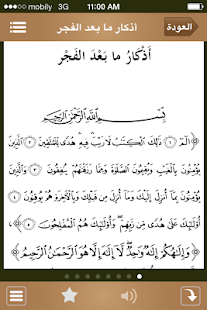 mobily 3G 11:00 AM
العودة أذكار ما بعد الفجر
أَذْكَارُ مَا بَعْدَ الفَجْرِ
بِسْمِ ٱللَّهِ ٱلرَّحْمَٰنِ ٱلرَّحِيمِ
الٓمٓ ١ ذَٰلِكَ ٱلْكِتَٰبُ لَا رَيْبَ ۛ فِيهِ ۛ هُدًى لِّلْمُتَّقِينَ ٢ ٱلَّذِينَ
يُؤْمِنُونَ بِٱلْغَيْبِ وَيُقِيمُونَ ٱلصَّلَوٰةَ وَمِمَّا رَزَقْنَٰهُمْ يُنفِقُونَ ٣ وَٱلَّذِينَ
يُؤْمِنُونَ بِمَآ أُنزِلَ إِلَيْكَ وَمَآ أُنزِلَ مِن قَبْلِكَ وَبِٱلْـَٔاخِرَةِ هُمْ يُوقِنُونَ ٤
أُو۟لَٰٓئِكَ عَلَىٰ هُدًى مِّن رَّبِّهِمْ ۖ وَأُو۟لَٰٓئِكَ هُمُ ٱلْمُفْلِحُونَ ٥
وَإِلَٰهُكُمْ إِلَٰهٌ وَٰحِدٌ ۖ لَّآ إِلَٰهَ إِلَّا هُوَ ٱلرَّحْمَٰنُ ٱلرَّحِيمُ